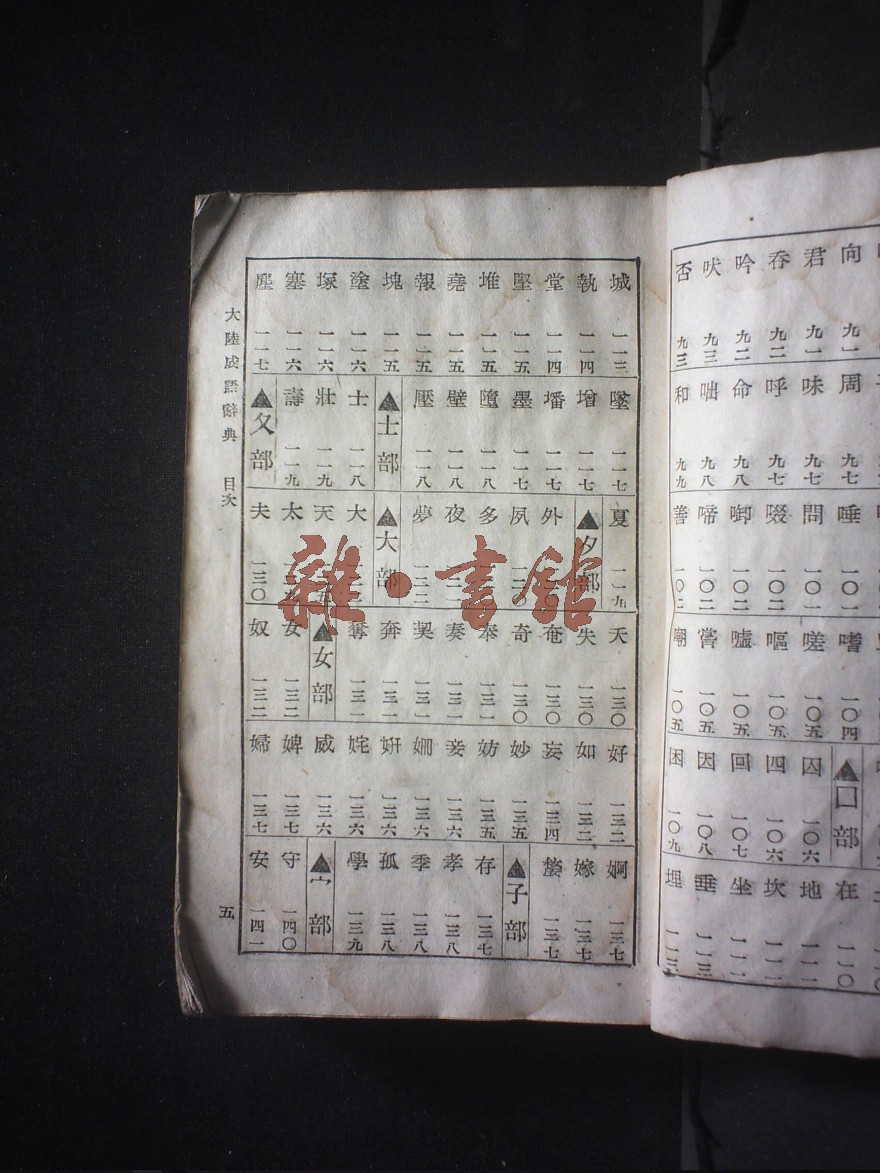 向 九一
君 九一
吞 九二
吟 九二
吠 九三
否 九三
周 九七
味 九七
呼 九七
命 九八
咄 九八
和 九九
唾 一〇一
問 一〇一
啜 一〇二
啣 一〇二
啼 一〇二
善 一〇二
嗜 一〇四
嗟 一〇五
嘔 一〇五
噓 一〇五
嘗 一〇五
嘲 一〇五
▲囗部
囚 一〇六
四 一〇六
回 一〇七
因 一〇八
困 一〇九
在 一一〇
地 一一一
坎 一一一
坐 一一一
垂 一一三
埋 一一三
城 一一三
執 一一四
堂 一一四
堅 一一五
堆 一一五
堯 一一五
報 一一五
塊 一一五
塗 一一六
塚 一一六
塞 一一六
塵 一一七
墜 一一七
增 一一七
墦 一一七
墨 一一七
墮 一一八
壁 一一八
壓 一一八
▲士部
士 一一八
壯 一一九
壽 一一九
▲夊部
夏 一一九
▲夕部
外
夙 一二〇
多
夜
夢 一二二
▲大部
大
天
太
夫 一三〇
夭 一三〇
失 一三〇
奄 一三〇
奇 一三〇
奉 一三一
奏 一三一
契 一三一
奔 一三一
奪 一三一
▲女部
女 一三二
奴 一三二
好 一三二
如 一三二
妄 一三四
妙 一三五
妨 一三五
妾 一三六
姍 一三六
妍 一三六
姹 一三六
威 一三六
婢 一三七
婦 一三七
婀 一三七
嫁 一三七
嫠 一三七
▲子部
存 一三七
孝 一三八
季 一三八
孤 一三八
學 一三九
▲宀部
守 一四〇
安 一四一
大陸成語辭典 目次
五
雜·書館